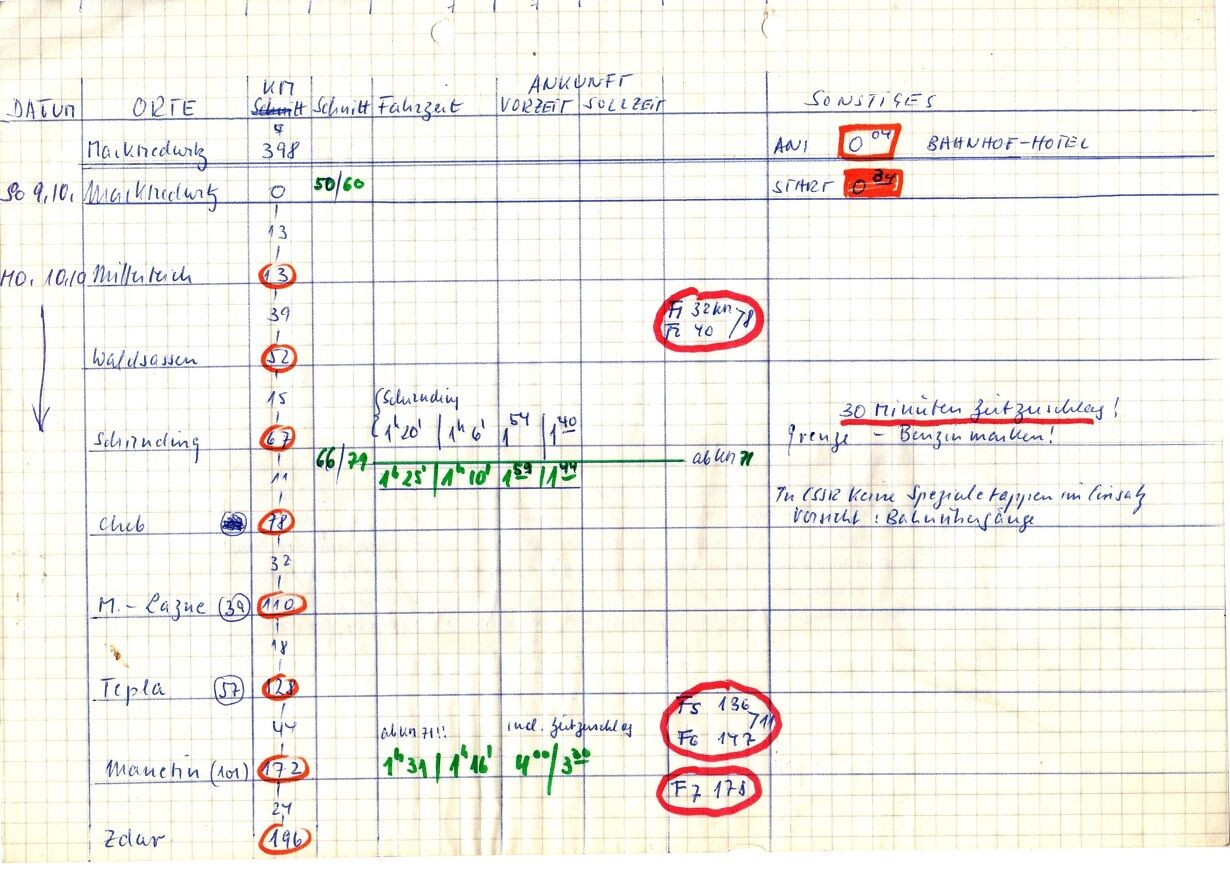 DATUM ORTE KM Schnitt Schnitt Fahrzeit ANKUNFT VORZEIT SOLLZEIT SONSTIGES
Marktredwitz 398 AN: 0 04 BAHNHOF-HOTEL
So 9.10. Marktredwitz 0 50/60 START 0 34
13
MO. 10.10 Mitterteich 13
39 F1 32 km /8
F2 40
Waldsassen 52
15 Schirnding
30 Minuten Zeitzuschlag!
Schirnding 67 1h 20' | 1h 6' 1 54 | 1 40 Grenze - Benzinmarken!
66/79 ab km 71
11 1h 25' | 1h 10' 1 59 | 1 44
In CSSR keine Spezialetappen im Einsatz
Cheb 78 Vorsicht: Bahnübergänge
32
M.-Lazne (39) 110
18
Tepla (57) 128
F5 136
44 ab km 71!! incl. Zeitzuschlag /11
F6 147
Manetin (101) 172 1h 31 | 1h 16' 4 00 / 3 30
F7 178
24
Zdar 196